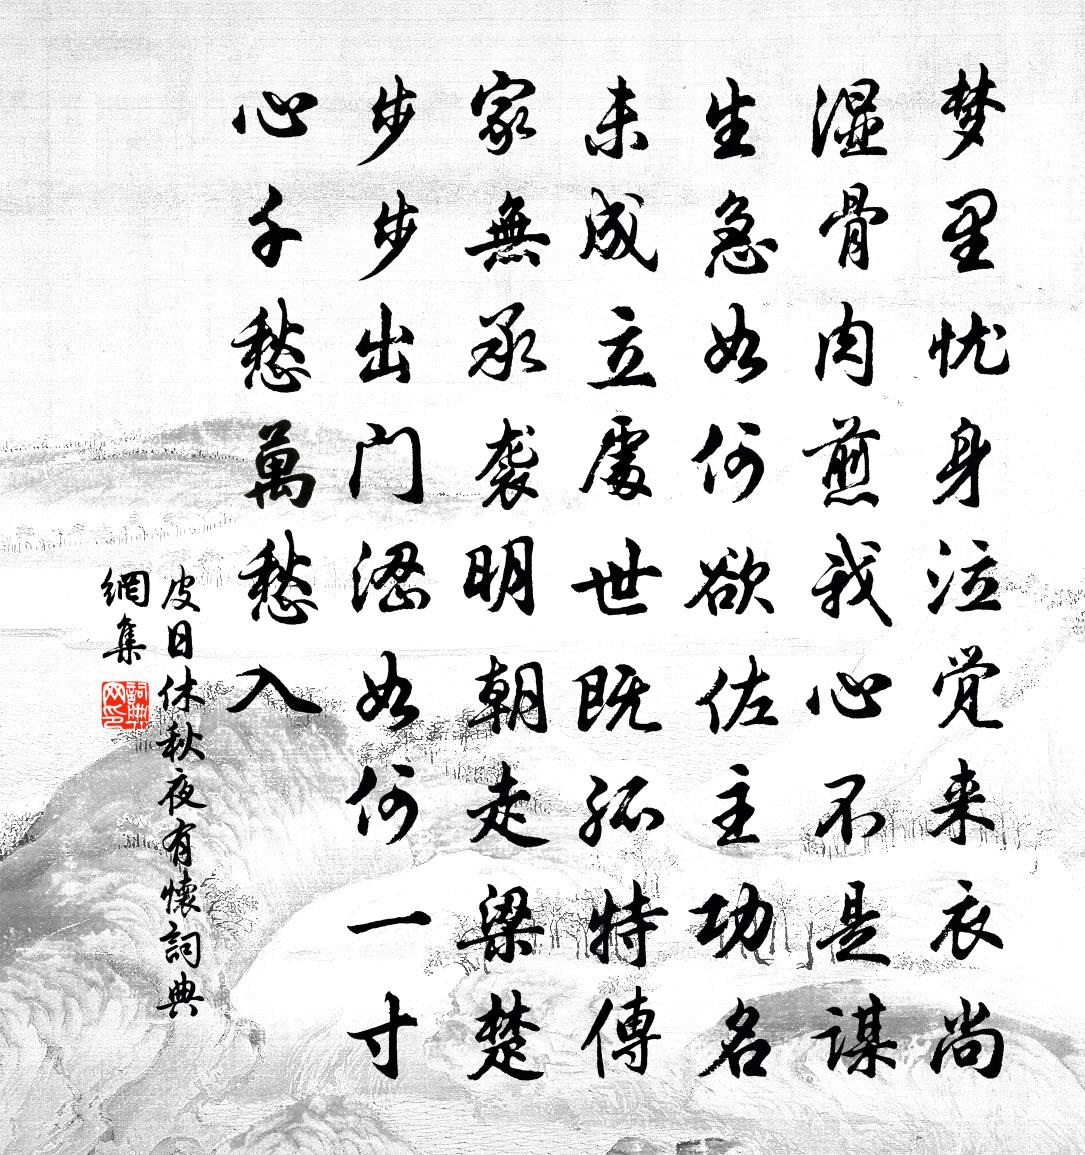 梦里忧身泣觉来衣尚
湿骨肉煎我心不是谋
生急如何欲佐主功名
未成立處世既孤特傳
家無承袭明朝走梁楚
步步出门涩如何一寸
心千愁萬愁入
皮日休秋夜有懷詞典
網集